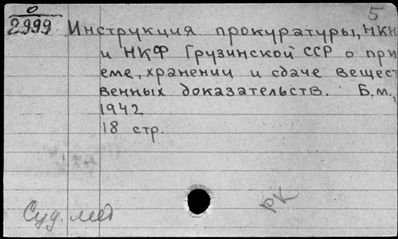 0
2999
5
Инструкция прокуратуры, НКЮ
и НКФ Грузинской ССР о при
еме, хранении и сдаче вещест
венных доказательств. Б.м.,
1942
18 стр.
Суд. мед
РК